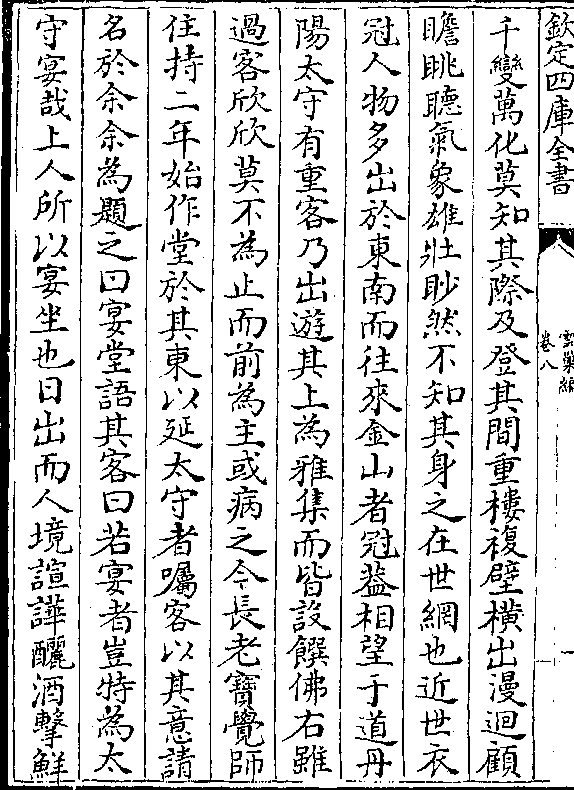 欽定四庫全書
雲巢編
卷八
千變萬化莫知其際及登其間重樓複壁橫出漫迴顧
瞻眺聽氣象雄壯眇然不知其身之在世網也近世衣
冠人物多出於東南而往來金山者冠葢相望于道丹
陽太守有重客乃出遊其上為雅集而皆設饌佛右雖
過客欣欣莫不為止而前為主或病之今長老寶覺師
住持二年始作堂於其東以延太守者囑客以其意請
名於余余為題之曰宴堂語其客曰若宴者豈特為太
守宴哉上人所以宴坐也日出而人境諠譁釃酒擊鮮